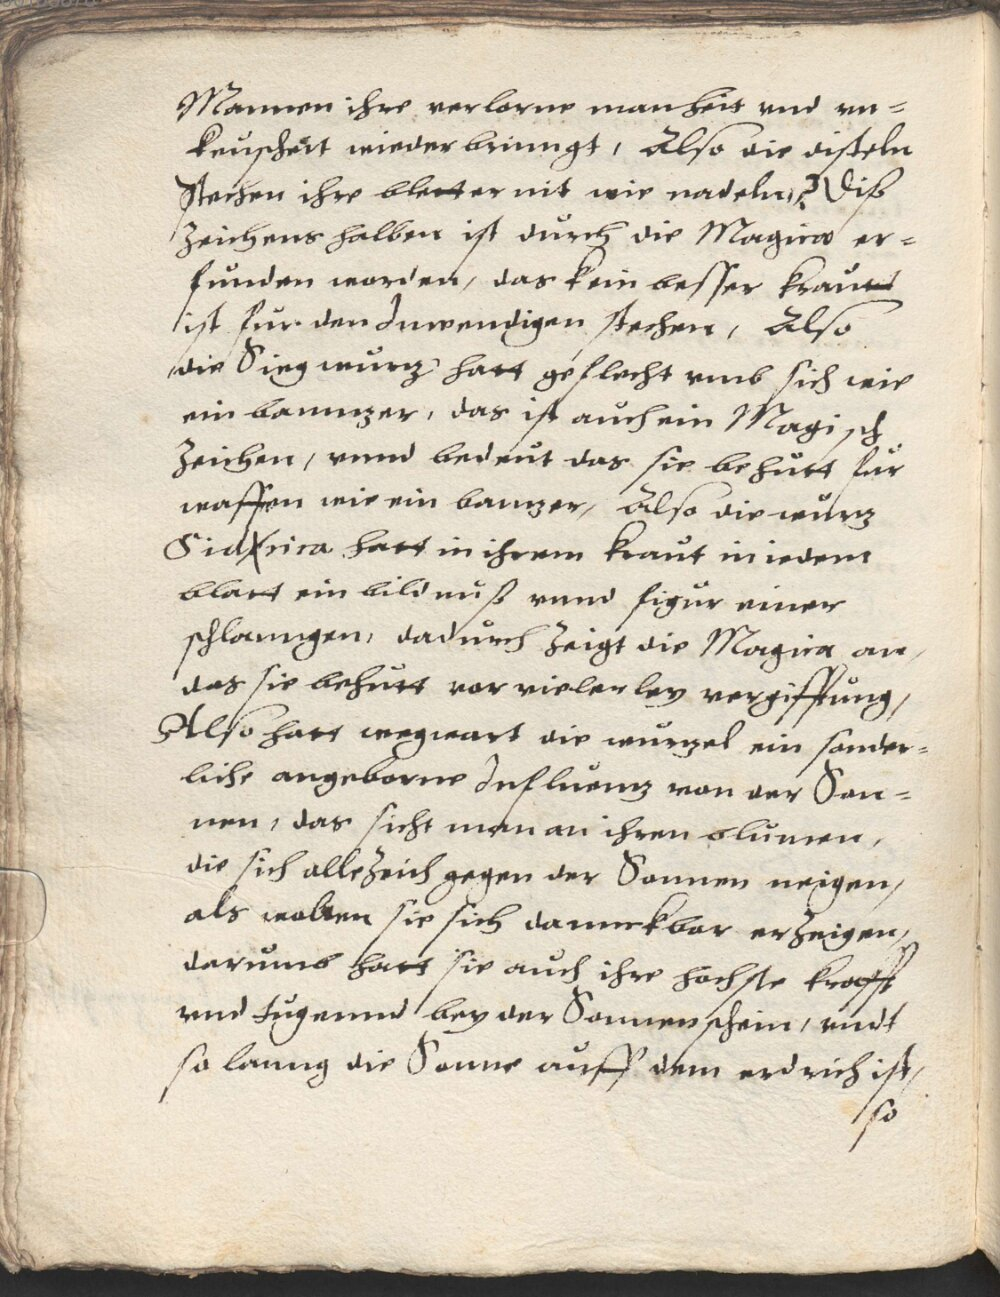 Mannen ihre verlorne manheit vnd vn=
keuscheit wieder brinngt, Also die disteln
stechen ihre bletter nit wie nadeln,? Diß
Zeichens halben ist durch die Magica er=
funden worden, das kein besser kraut
ist fur den Inwendigen stechen, Also
die Siegwurz hatt geflecht vmb sich wie
ein bannzer, das ist auch ein Magisch
Zeichen, vnnd bedeut das sie behutt fur
waffen wie ein banzer, Also die wurz
Siderica hatt in ihrem kraut in iedem
blatt ein bildnuß vnnd figur einer
schlanngen, dadurch Zeigt die Magica an,
das sie behutt vor vielerley vergifftung,
Also hatt wegwart die wurzel ein sonder=
liche angeborne Influenz von der Son=
nen, das sicht man an ihren blumen,
die sich alleZeich gegen der Sonnen neigen,
als wolten sie sich dannckbar erZeigen,
darumb hatt sie auch ihre hochste krafft
vnd tugennd bey der Sonnenschein, vndt
so lanng die Sonne auff dem erdrich ist,
so